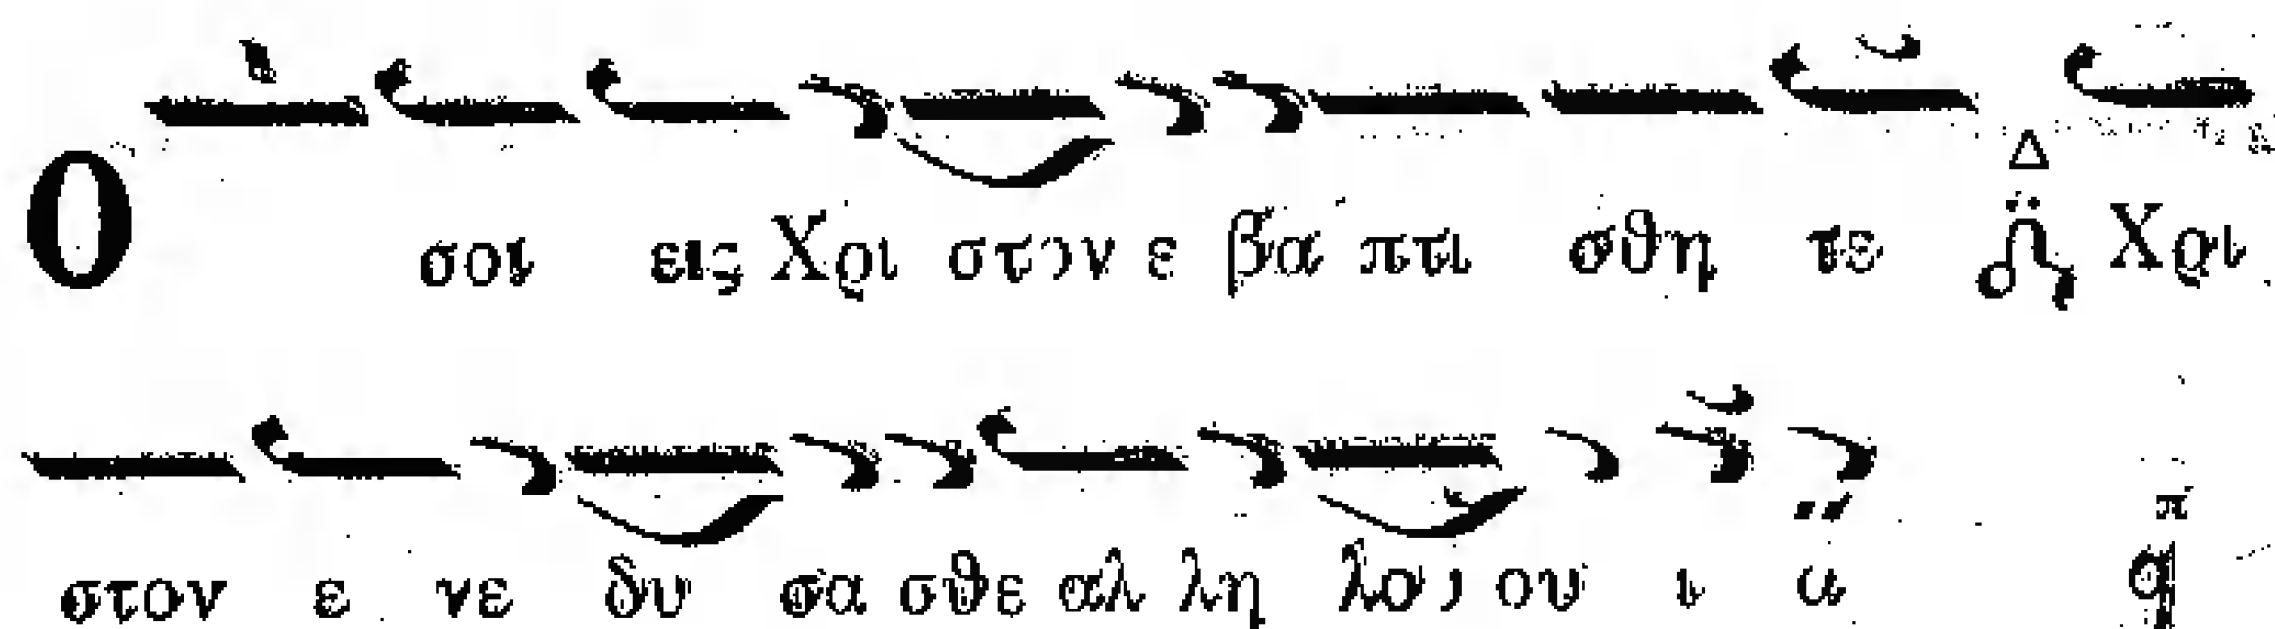 Ο σοι εις Χρι στον ε βα πτι σθη τε Δ Χρι
στον ε νε δυ σα σθε αλ λη λου ου ι α π